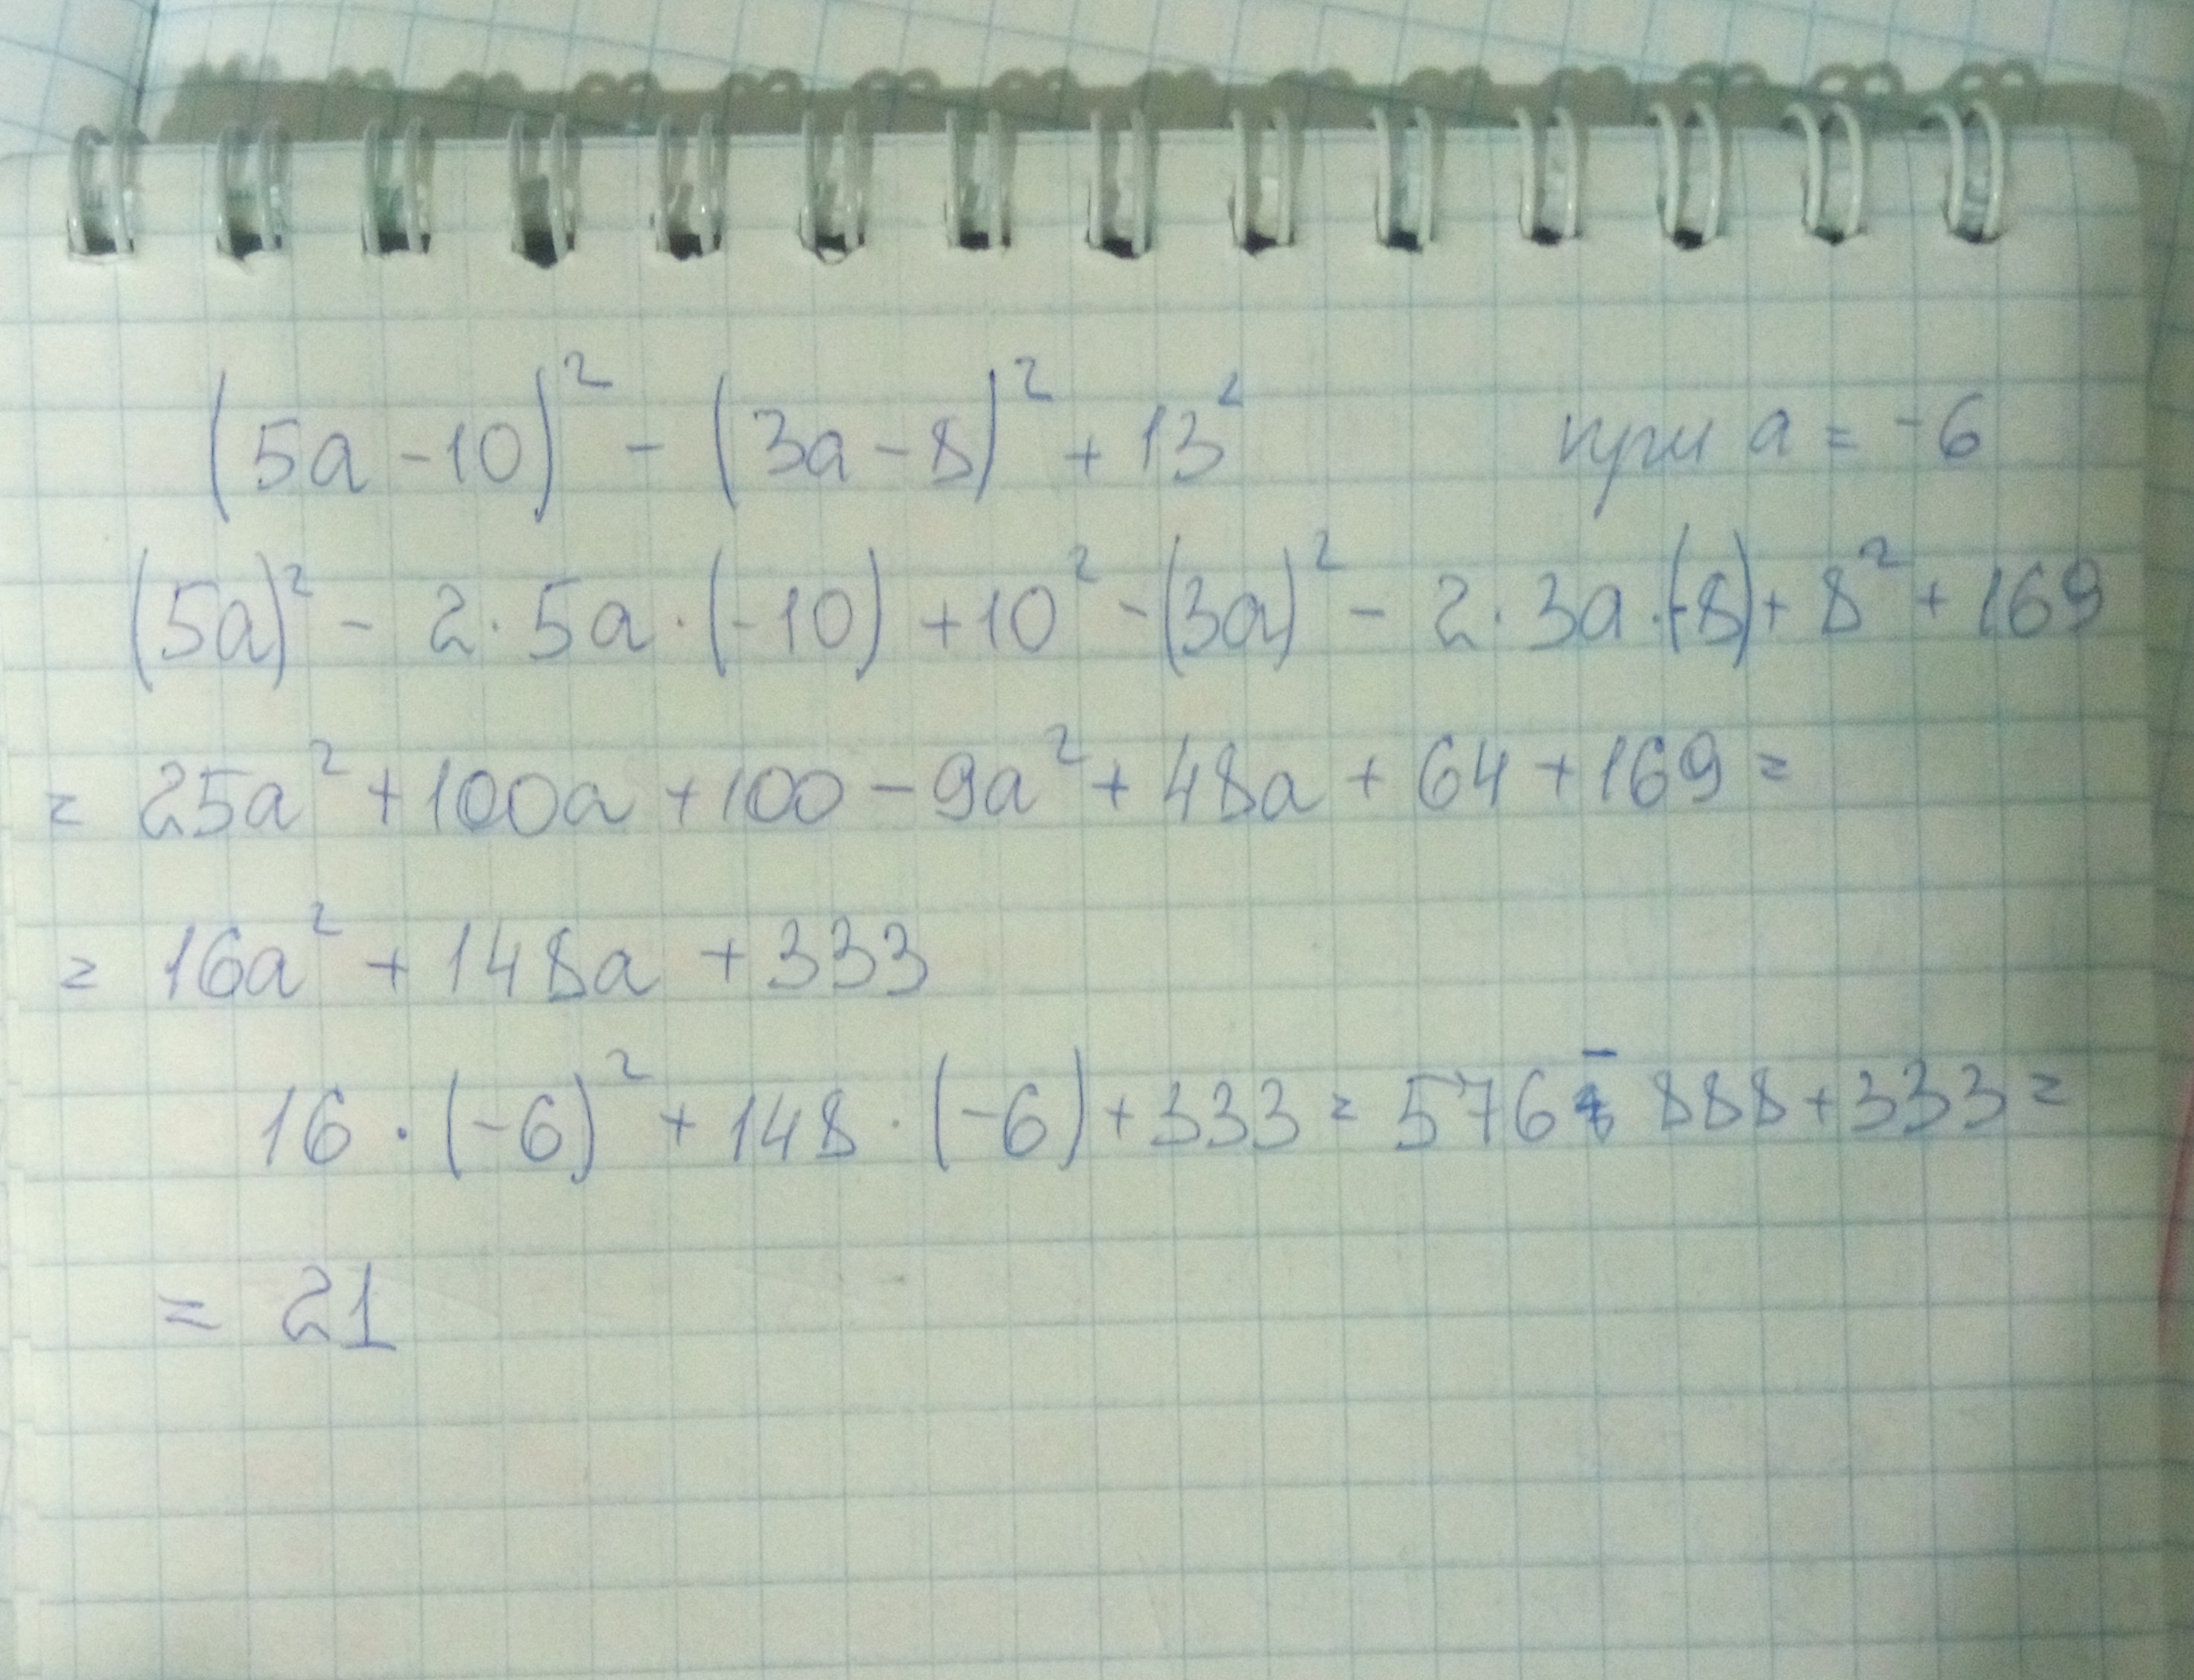 (5a - 10)² - (3a - 8)² + 13² при a = -6
(5a)² - 2 · 5a · (-10) + 10² - (3a)² - 2 · 3a · (-8) + 8² + 169
= 25a² + 100a + 100 - 9a² + 48a + 64 + 169 =
= 16a² + 148a + 333
16 · (-6)² + 148 · (-6) + 333 = 576 - 888 + 333 =
= 21